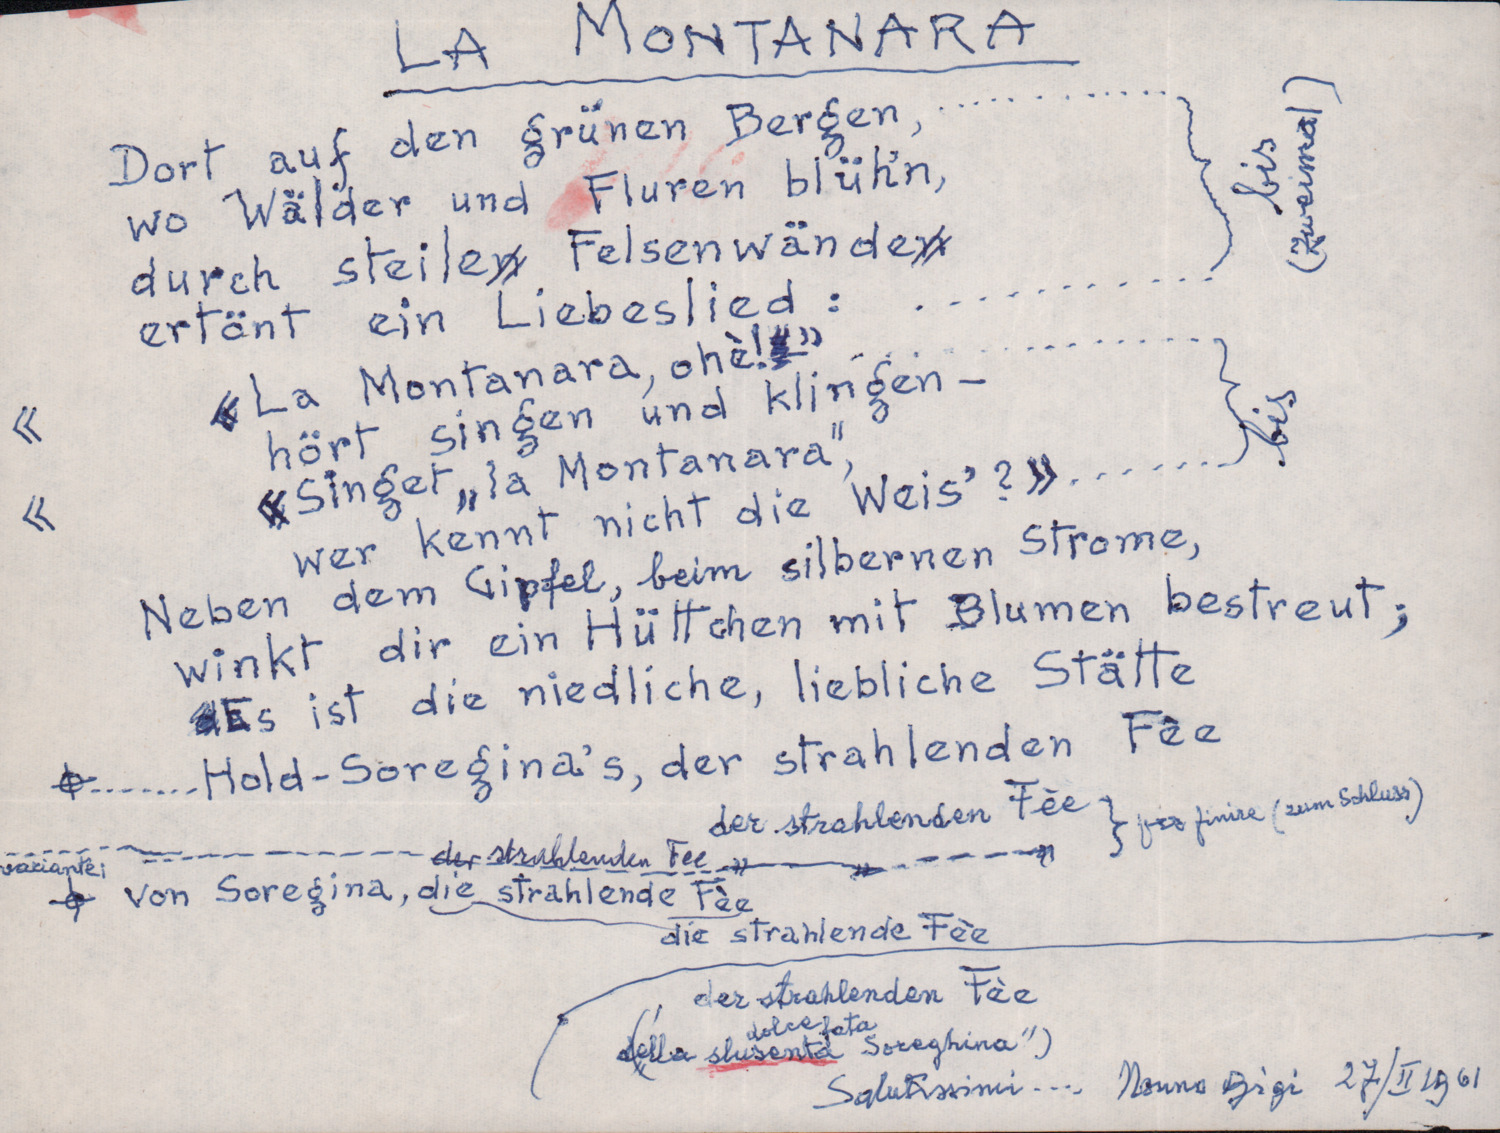 LA MONTANARA
Dort auf den grünen Bergen,
wo Wälder und Fluren blüh'n,
bis
(zweimal)
durch steilen Felsenwänden
ertönt ein Liebeslied :
«La Montanara, ohè!»
«
hört singen und klingen –
bis
«Singet „la Montanara",
«
wer kennt nicht die Weis' ?»
Neben dem Gipfel, beim silbernen Strome,
winkt dir ein Hüttchen mit Blumen bestreut;
Es ist die niedliche, liebliche Stätte
Hold-Soregina's, der strahlenden Fèe
der strahlenden Fèe } per finire (zum Schluss)
der strahlenden Fee
variante:
von Soregina, die strahlende Fèe
die strahlende Fèe
der strahlenden Fèe
dolce fata
(della slusenta Soreghina")
Salutissimi .... Nonno Gigi 27/II 1961